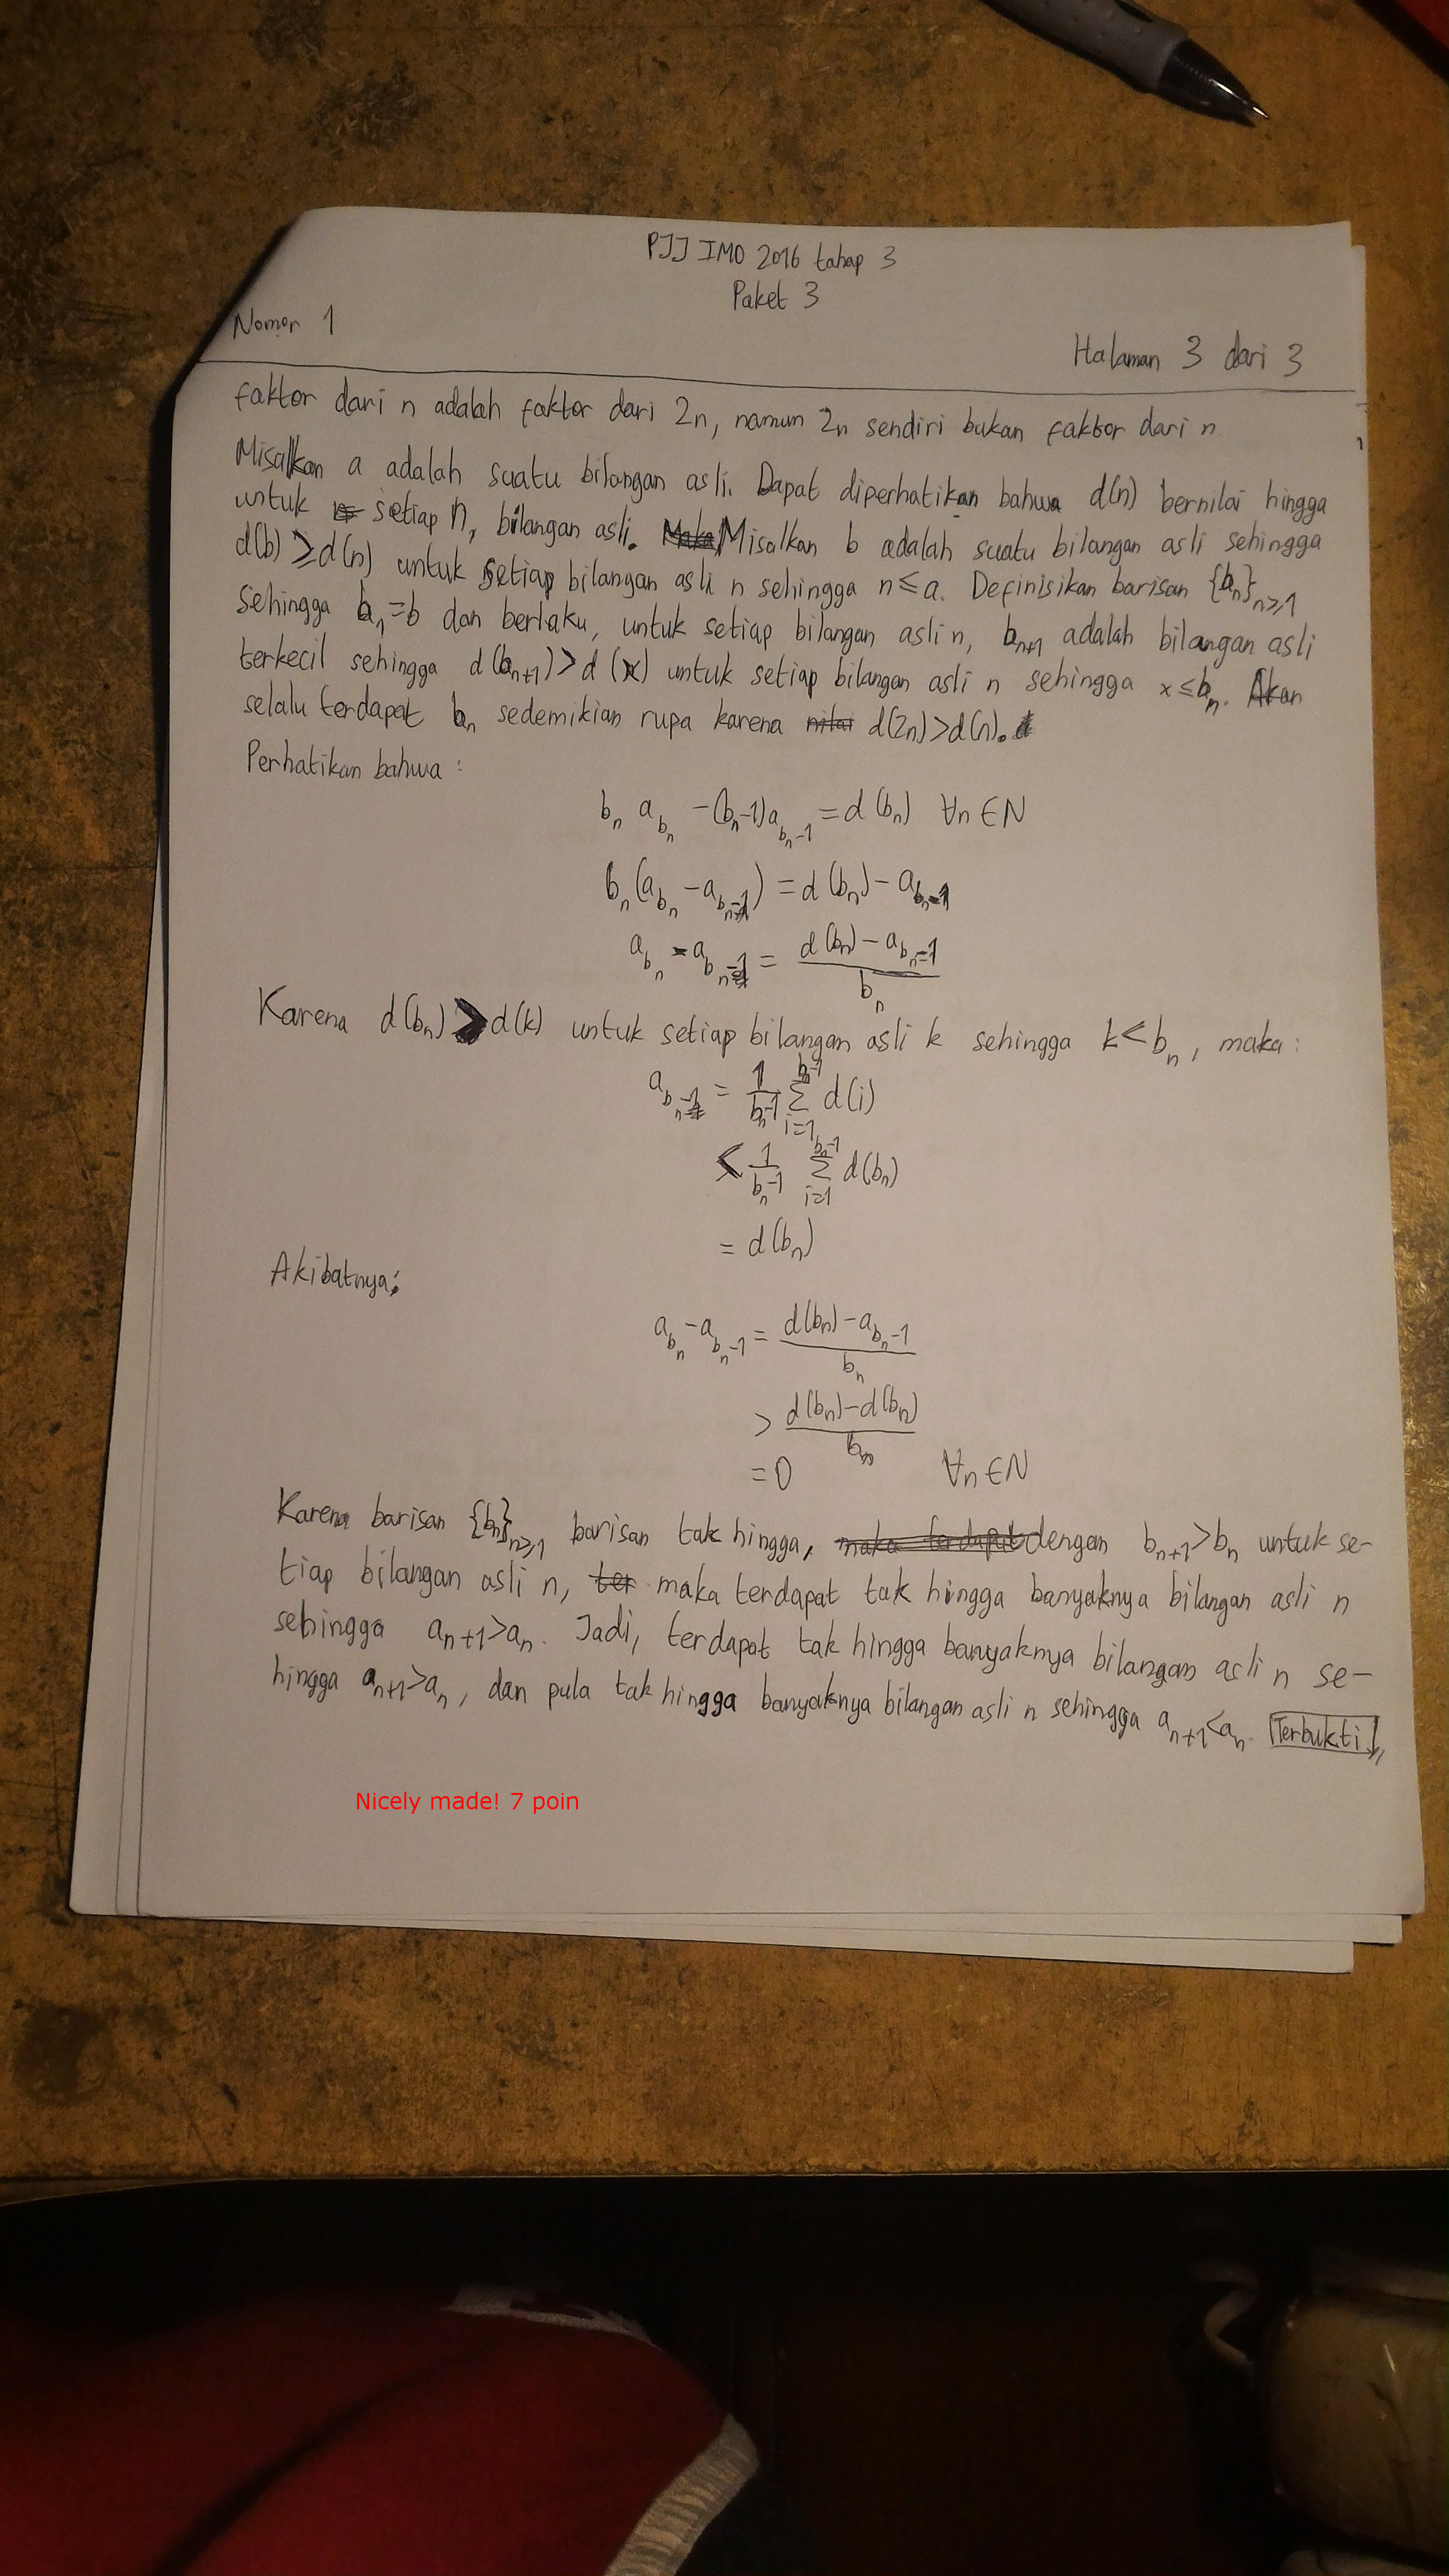 PJJ IMO 2016 tahap 3
Paket 3
Nomor 1
Halaman 3 dari 3
faktor dari n adalah faktor dari 2n, namun 2n sendiri bukan faktor dari n.
Misalkan a adalah suatu bilangan asli. Dapat diperhatikan bahwa d(n) bernilai hingga
untuk setiap n, bilangan asli. Misalkan b adalah suatu bilangan asli sehingga
d(b) ≥ d(n) untuk setiap bilangan asli n sehingga n ≤ a. Definisikan barisan {b_n}_{n≥1}
sehingga b_1 = b dan berlaku, untuk setiap bilangan asli n, b_{n+1} adalah bilangan asli
terkecil sehingga d(b_{n+1}) > d(x) untuk setiap bilangan asli n sehingga x ≤ b_n. Akan
selalu terdapat b_n sedemikian rupa karena d(2n) > d(n).
Perhatikan bahwa :
b_n a_{b_n} - (b_n - 1)a_{b_n - 1} = d(b_n) ∀n ∈ N
b_n(a_{b_n} - a_{b_n - 1}) = d(b_n) - a_{b_n - 1}
a_{b_n} - a_{b_n - 1} = \frac{d(b_n) - a_{b_n - 1}}{b_n}
Karena d(b_n) > d(k) untuk setiap bilangan asli k sehingga k < b_n, maka :
a_{b_n - 1} = \frac{1}{b_n - 1} \sum_{i=1}^{b_n - 1} d(i)
< \frac{1}{b_n - 1} \sum_{i=1}^{b_n - 1} d(b_n)
= d(b_n)
Akibatnya;
a_{b_n} - a_{b_n - 1} = \frac{d(b_n) - a_{b_n - 1}}{b_n}
> \frac{d(b_n) - d(b_n)}{b_n}
= 0 ∀n ∈ N
Karena barisan {b_n}_{n≥1} barisan tak hingga, dengan b_{n+1} > b_n untuk se-
tiap bilangan asli n, maka terdapat tak hingga banyaknya bilangan asli n
sehingga a_{n+1} > a_n. Jadi, terdapat tak hingga banyaknya bilangan asli n se-
hingga a_{n+1} > a_n, dan pula tak hingga banyaknya bilangan asli n sehingga a_{n+1} < a_n. Terbukti
Nicely made! 7 poin